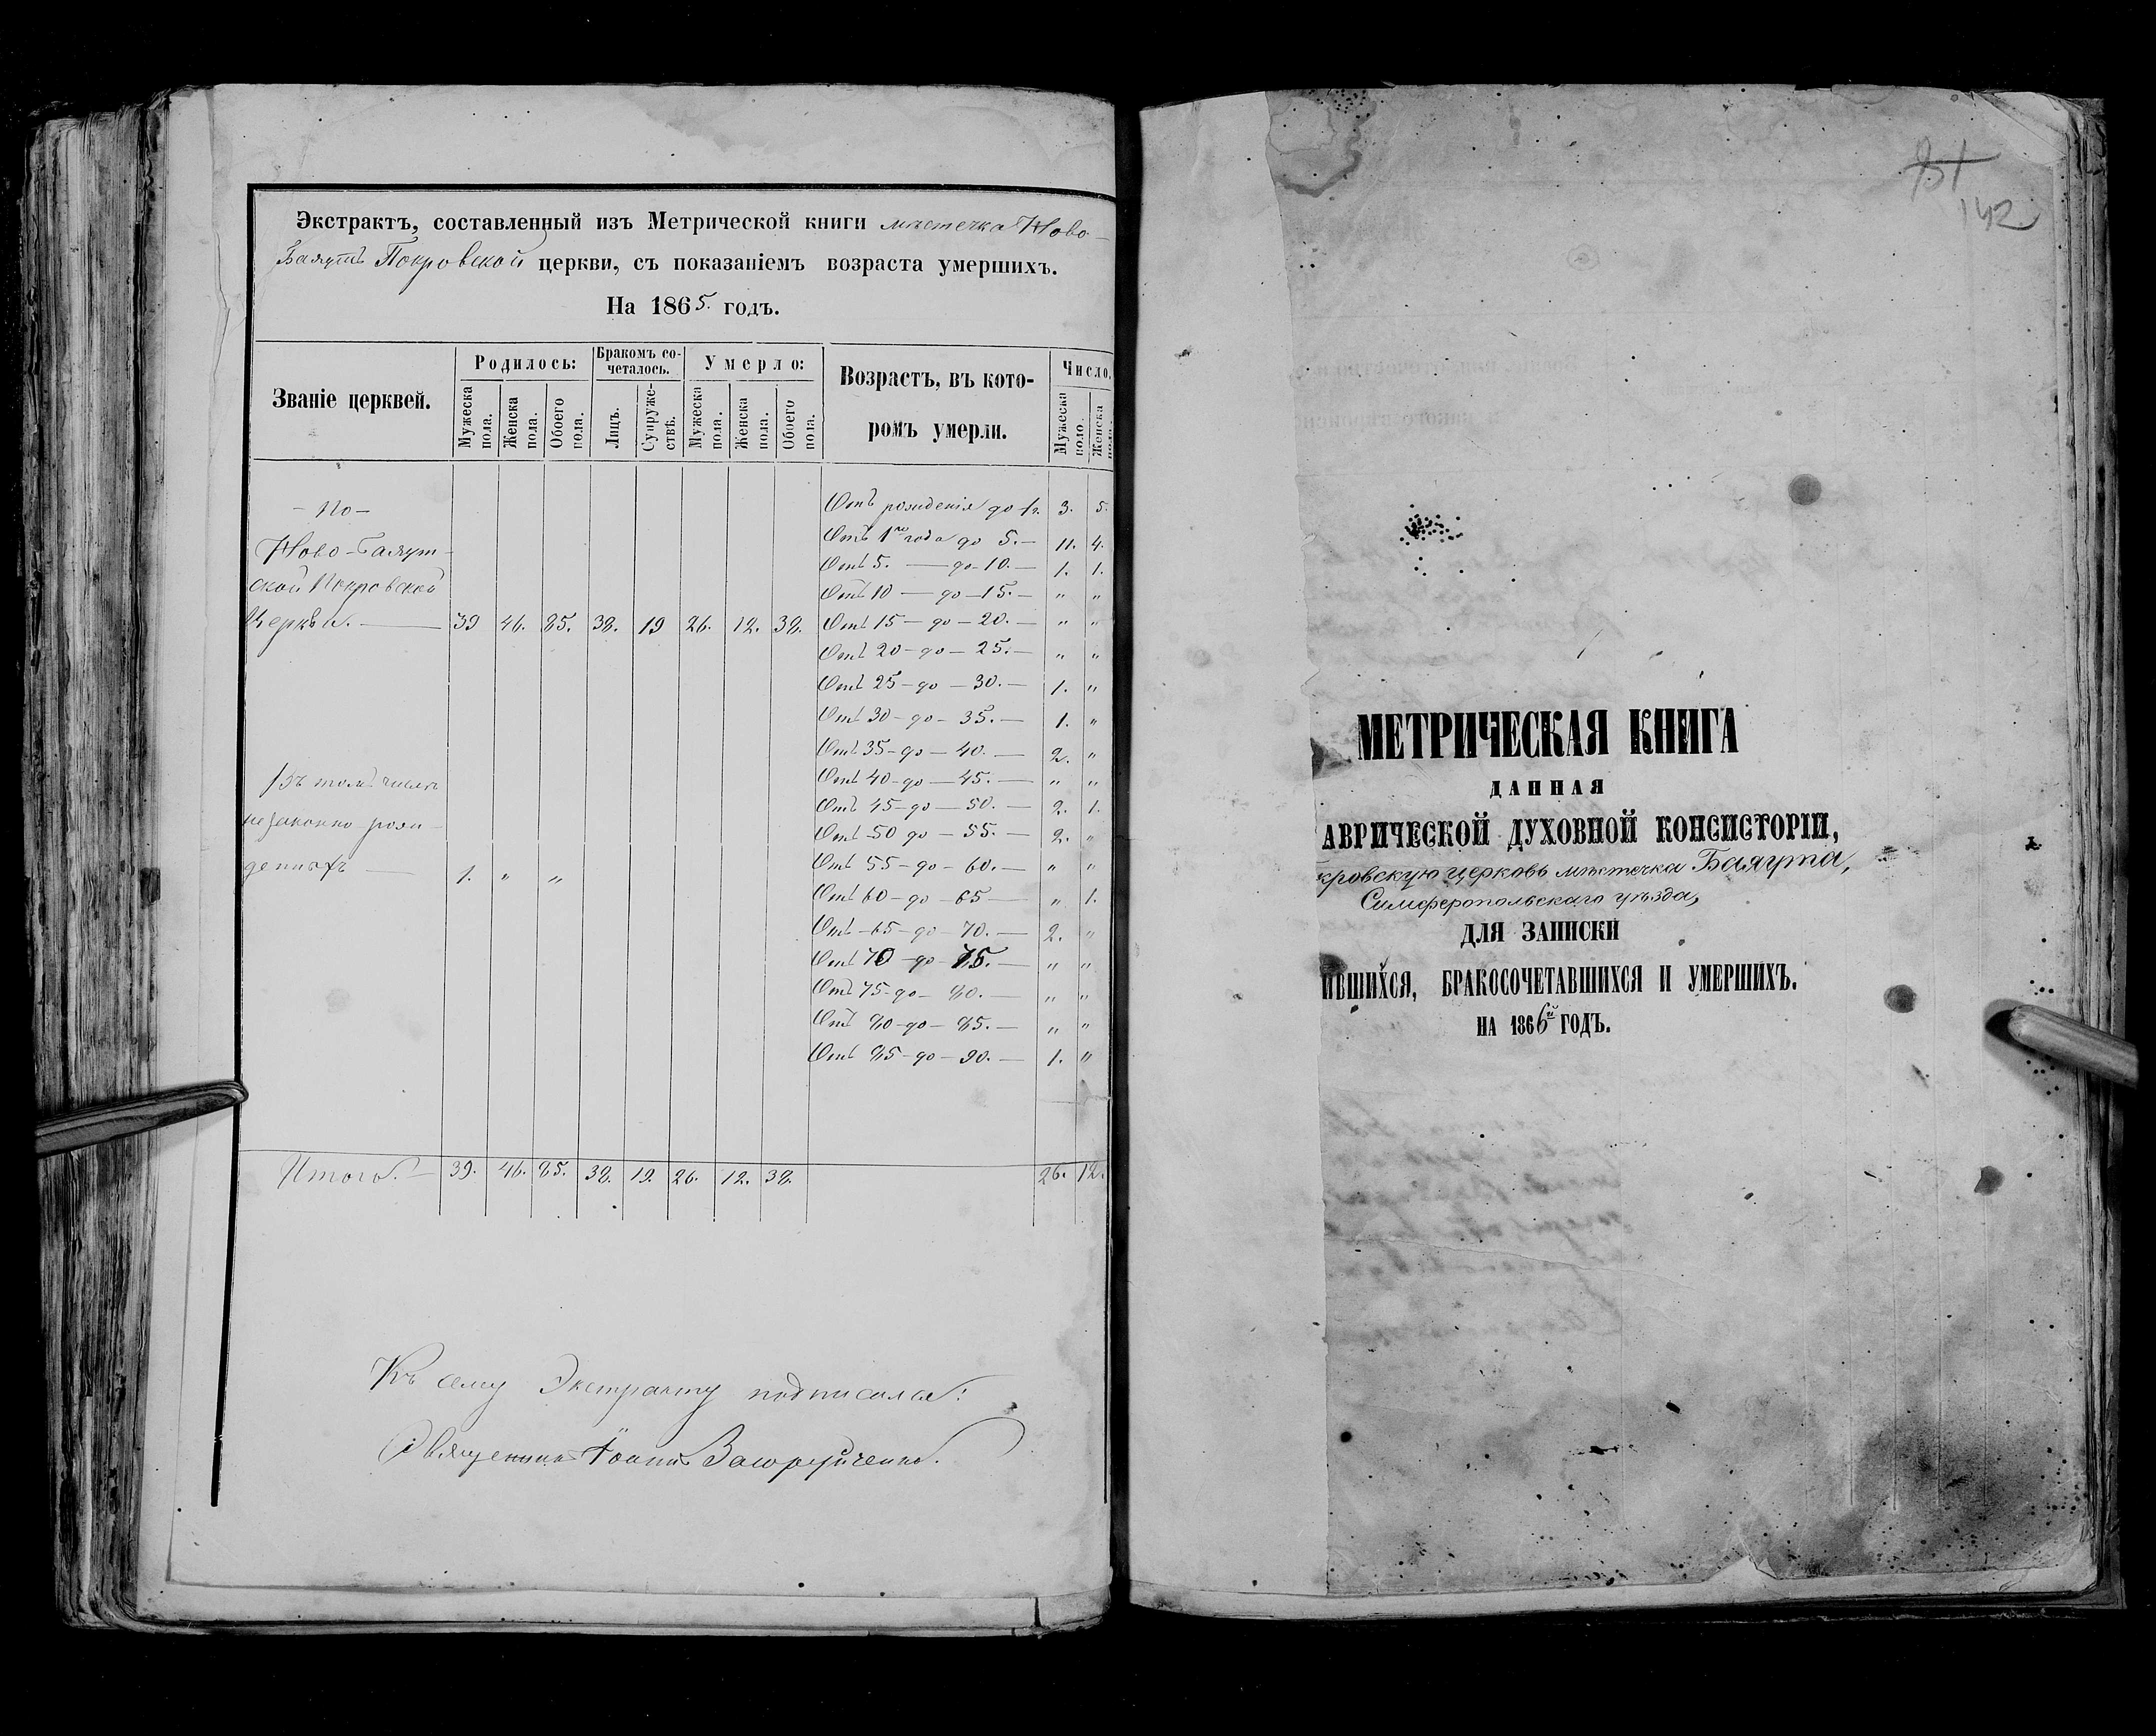 Экстрактъ, составленный изъ Метрической книги мѣстечка Ново-
Баяутъ Покровской церкви, съ показаніемъ возраста умершихъ.
На 1865. годъ.
Званіе церквей. Родилось: Бракомъ со-четалось. Умерло: Возрастъ, въ кото-ромъ умерли. Число.
Мужеска пола. Женска пола. Обоего пола. Лицъ. Супруже-ствъ. Мужеска пола. Женска пола. Обоего пола. Мужеска поло. Женска пола.
- По - Отъ рожденія до 1 г. 3. 5.
Ново-Баяут- Отъ 1го года до 5. — 11. 4.
Отъ 5. — до - 10. — 1. 1.
ской Покровской Отъ 10 — до — 15. — " "
Церкви. — 39 46. 85. 38. 19 26. 12. 38. Отъ 15 — до — 20. — " "
Отъ 20 - до — 25. — " "
Отъ 25 - до — 30. — 1. "
Отъ 30 - до — 35. — 1. "
Отъ 35 - до — 40. — 2. "
въ томъ числѣ Отъ 40 - до — 45. — " "
Отъ 45 - до — 50. — 2. 1.
незаконно-рож- Отъ 50 до — 55. — 2. "
денныхъ — 1. " " Отъ 55 - до — 60. — " "
Отъ 60 - до — 65 — " 1.
Отъ 65 - до — 70. — 2. "
Отъ 70 - до — 75. — " "
Отъ 75 - до — 80. — " "
Отъ 80 - до — 85. — " "
Отъ 85 - до — 90. — 1. "
Итого. — 39. 46. 85. 38. 19. 26. 12. 38. 26. 12.
Къ сему Экстракту подписался:
Священникъ Іоаннъ
142
МЕТРИЧЕСКАЯ КНИГА
ДАННАЯ
АВРИЧЕСКОЙ ДУХОВНОЙ КОНСИСТОРІИ,
кровскую церковь мѣстечка Баяута,
Симферопольскаго уѣзда,
ДЛЯ ЗАПИСКИ
ИВШИХСЯ, БРАКОСОЧЕТАВШИХСЯ И УМЕРШИХЪ.
НА 1866й ГОДЪ.